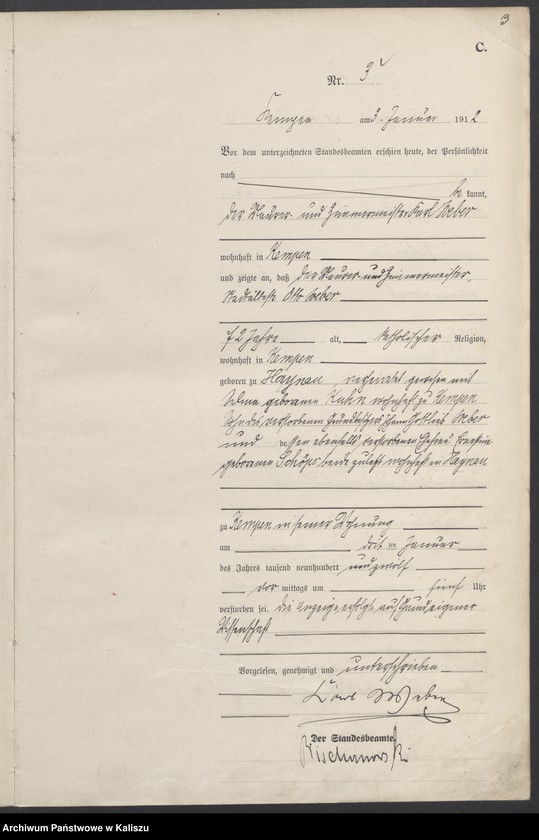 3
C.
Nr. 3
Kempen am 3. Januar 1912
Vor dem unterzeichneten Standesbeamten erschien heute, der Persönlichkeit
nach
be kannt,
der Maurer- und Zimmermeister Karl Weber
wohnhaft in Kempen
und zeigte an, daß der Maurer und Zimmermeister,
Stadtälteste Otto Weber
72 Jahre alt, katholischer Religion,
wohnhaft in Kempen
geboren zu Haynau, verheiratet gewesen mit
Selma geborenen Kuhn wohnhaft zu Kempen
Sohn des verstorbenen Grundbesitzers Gottlieb Weber
und dessen ebenfalls verstorbenen Ehefrau Ernestine
geborenen Schöps beide zuletzt wohnhaft in Haynau
zu Kempen in seiner Wohnung
am drit ten Januar
des Jahres tausend neunhundert und zwölf
vor mittags um fünf Uhr
verstorben sei. Die Anzeige erfolgte auf Grund eigener
Wissenschaft
Vorgelesen, genehmigt und unterschrieben
Karl Weber
Der Standesbeamte.
Archiwum Państwowe w Kaliszu